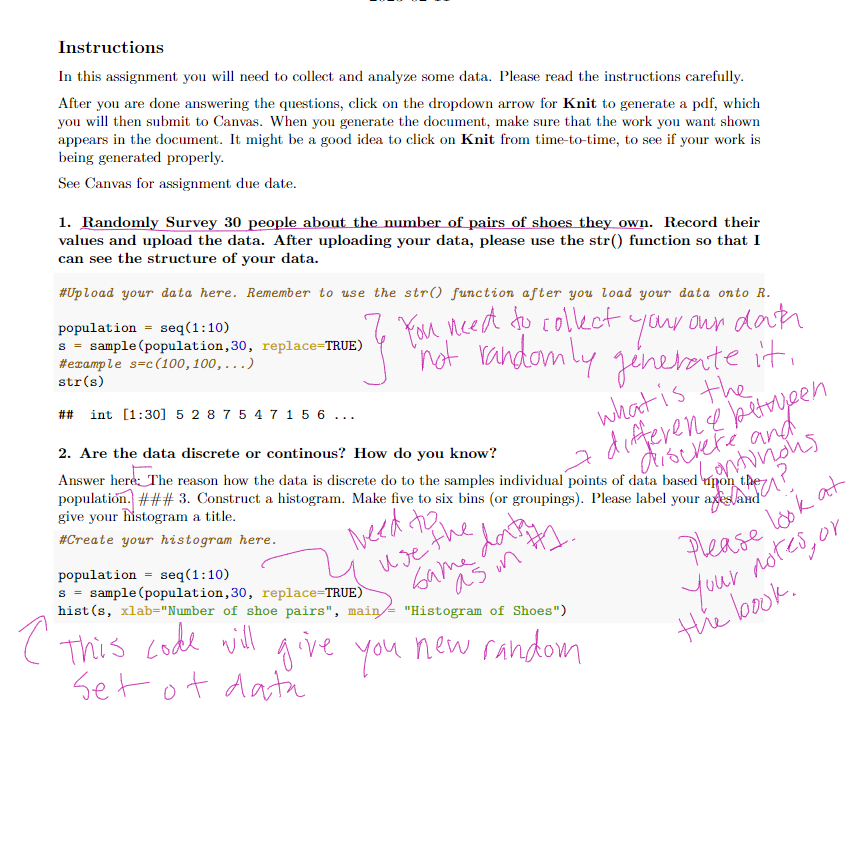 Instructions
In this assignment you will need to collect and analyze some data. Please read the instructions carefully.
After you are done answering the questions, click on the dropdown arrow for Knit to generate a pdf, which
you will then submit to Canvas. When you generate the document, make sure that the work you want shown
appears in the document. It might be a good idea to click on Knit from time-to-time, to see if your work is
being generated properly.
See Canvas for assignment due date.
1. Randomly Survey 30 people about the number of pairs of shoes they own. Record their
values and upload the data. After uploading your data, please use the str() function so that I
can see the structure of your data.
#Upload your data here. Remember to use the str() function after you load your data onto R.
population = seq(1:10)
s = sample(population,30, replace=TRUE)
#example s=c(100,100,...)
str(s)
You need to collect your own data
not randomly generate it.
## int [1:30] 5 2 8 7 5 4 7 1 5 6 ...
what is the
difference between
discrete and
continous
data?
Please look at
your notes, or
the book.
2. Are the data discrete or continous? How do you know?
Answer here: The reason how the data is discrete do to the samples individual points of data based upon the
population. ### 3. Construct a histogram. Make five to six bins (or groupings). Please label your axes,and
give your histogram a title.
#Create your histogram here.
Need to
use the data
same as in #1.
population = seq(1:10)
s = sample(population,30, replace=TRUE)
hist(s, xlab="Number of shoe pairs", main = "Histogram of Shoes")
This code will give you new random
set of data